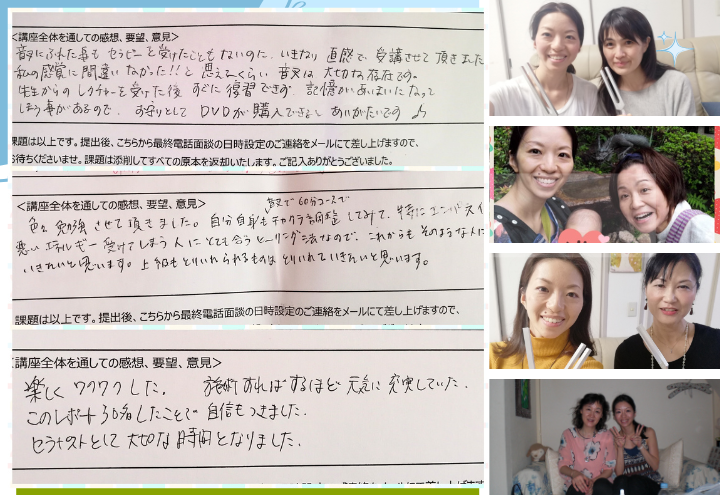 <講座全体を通しての感想、要望、意見>
音叉にふれた事も セラピーを受けたこともないのに、いきなり 直感で 受講させて 頂きました
私の感覚に間違いなかった!!と 思えるくらい 音叉は 大切な存在です。
先生からの レクチャーを受けた後 すぐに復習できず 記憶があいまいになって
しまう事があるので、お守りとして DVDが購入できると ありがたいです ♪
課題は以上です。提出後、こちらから最終電話面談の日時設定のご連絡をメールにて差し上げますので、
お待ちくださいませ。課題は添削してすべての原本を返却いたします。ご記入ありがとうございました。
<講座全体を通しての感想、要望、意見>
音叉で60分コースで
色々 勉強 させて頂きました。自分自身も チャクラ調整 してみて、特に
悪い エネルギー 受けてしまう人にとても合う ヒーリング法なので、これからも そのような人に
いきたいと思います。上級もとりいれられるものは とりいれていきたいと思います。
課題は以上です。提出後、こちらから最終電話面談の日時設定のご連絡をメールにて差し上げますので、
講座全体を通しての感想、要望、意見>
楽しく ワクワクした。 施術すればするほど 元気に 充実していた。
このレポート30名したことで 自信もつきました。
セラピストとして 大切な時間となりました。